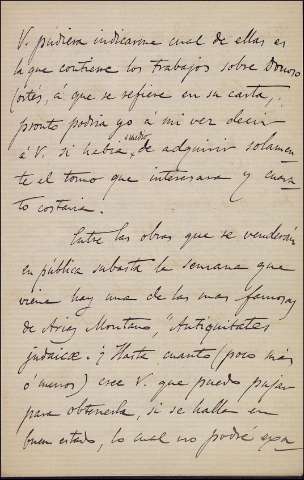 V. pudiera indicarme cual de ellas es
la que contiene los trabajos sobre Donoso
Cortés, á que se refiere en su carta,
pronto podria yo á mi vez decir
á V. si habia medio de adquirir solamen
te el tomo que interesara y cuan
to costaria.
Entre las obras que se venderán
en pública subasta la semana que
viene hay una de las mas famosas
de Arias Montano, "Antiquitates
judaicæ." ¿Hasta cuanto (poco mas
ó menos) cree V. que puedo pujar
para obtenerla, si se halla en
buen estado, lo cual no podré exa